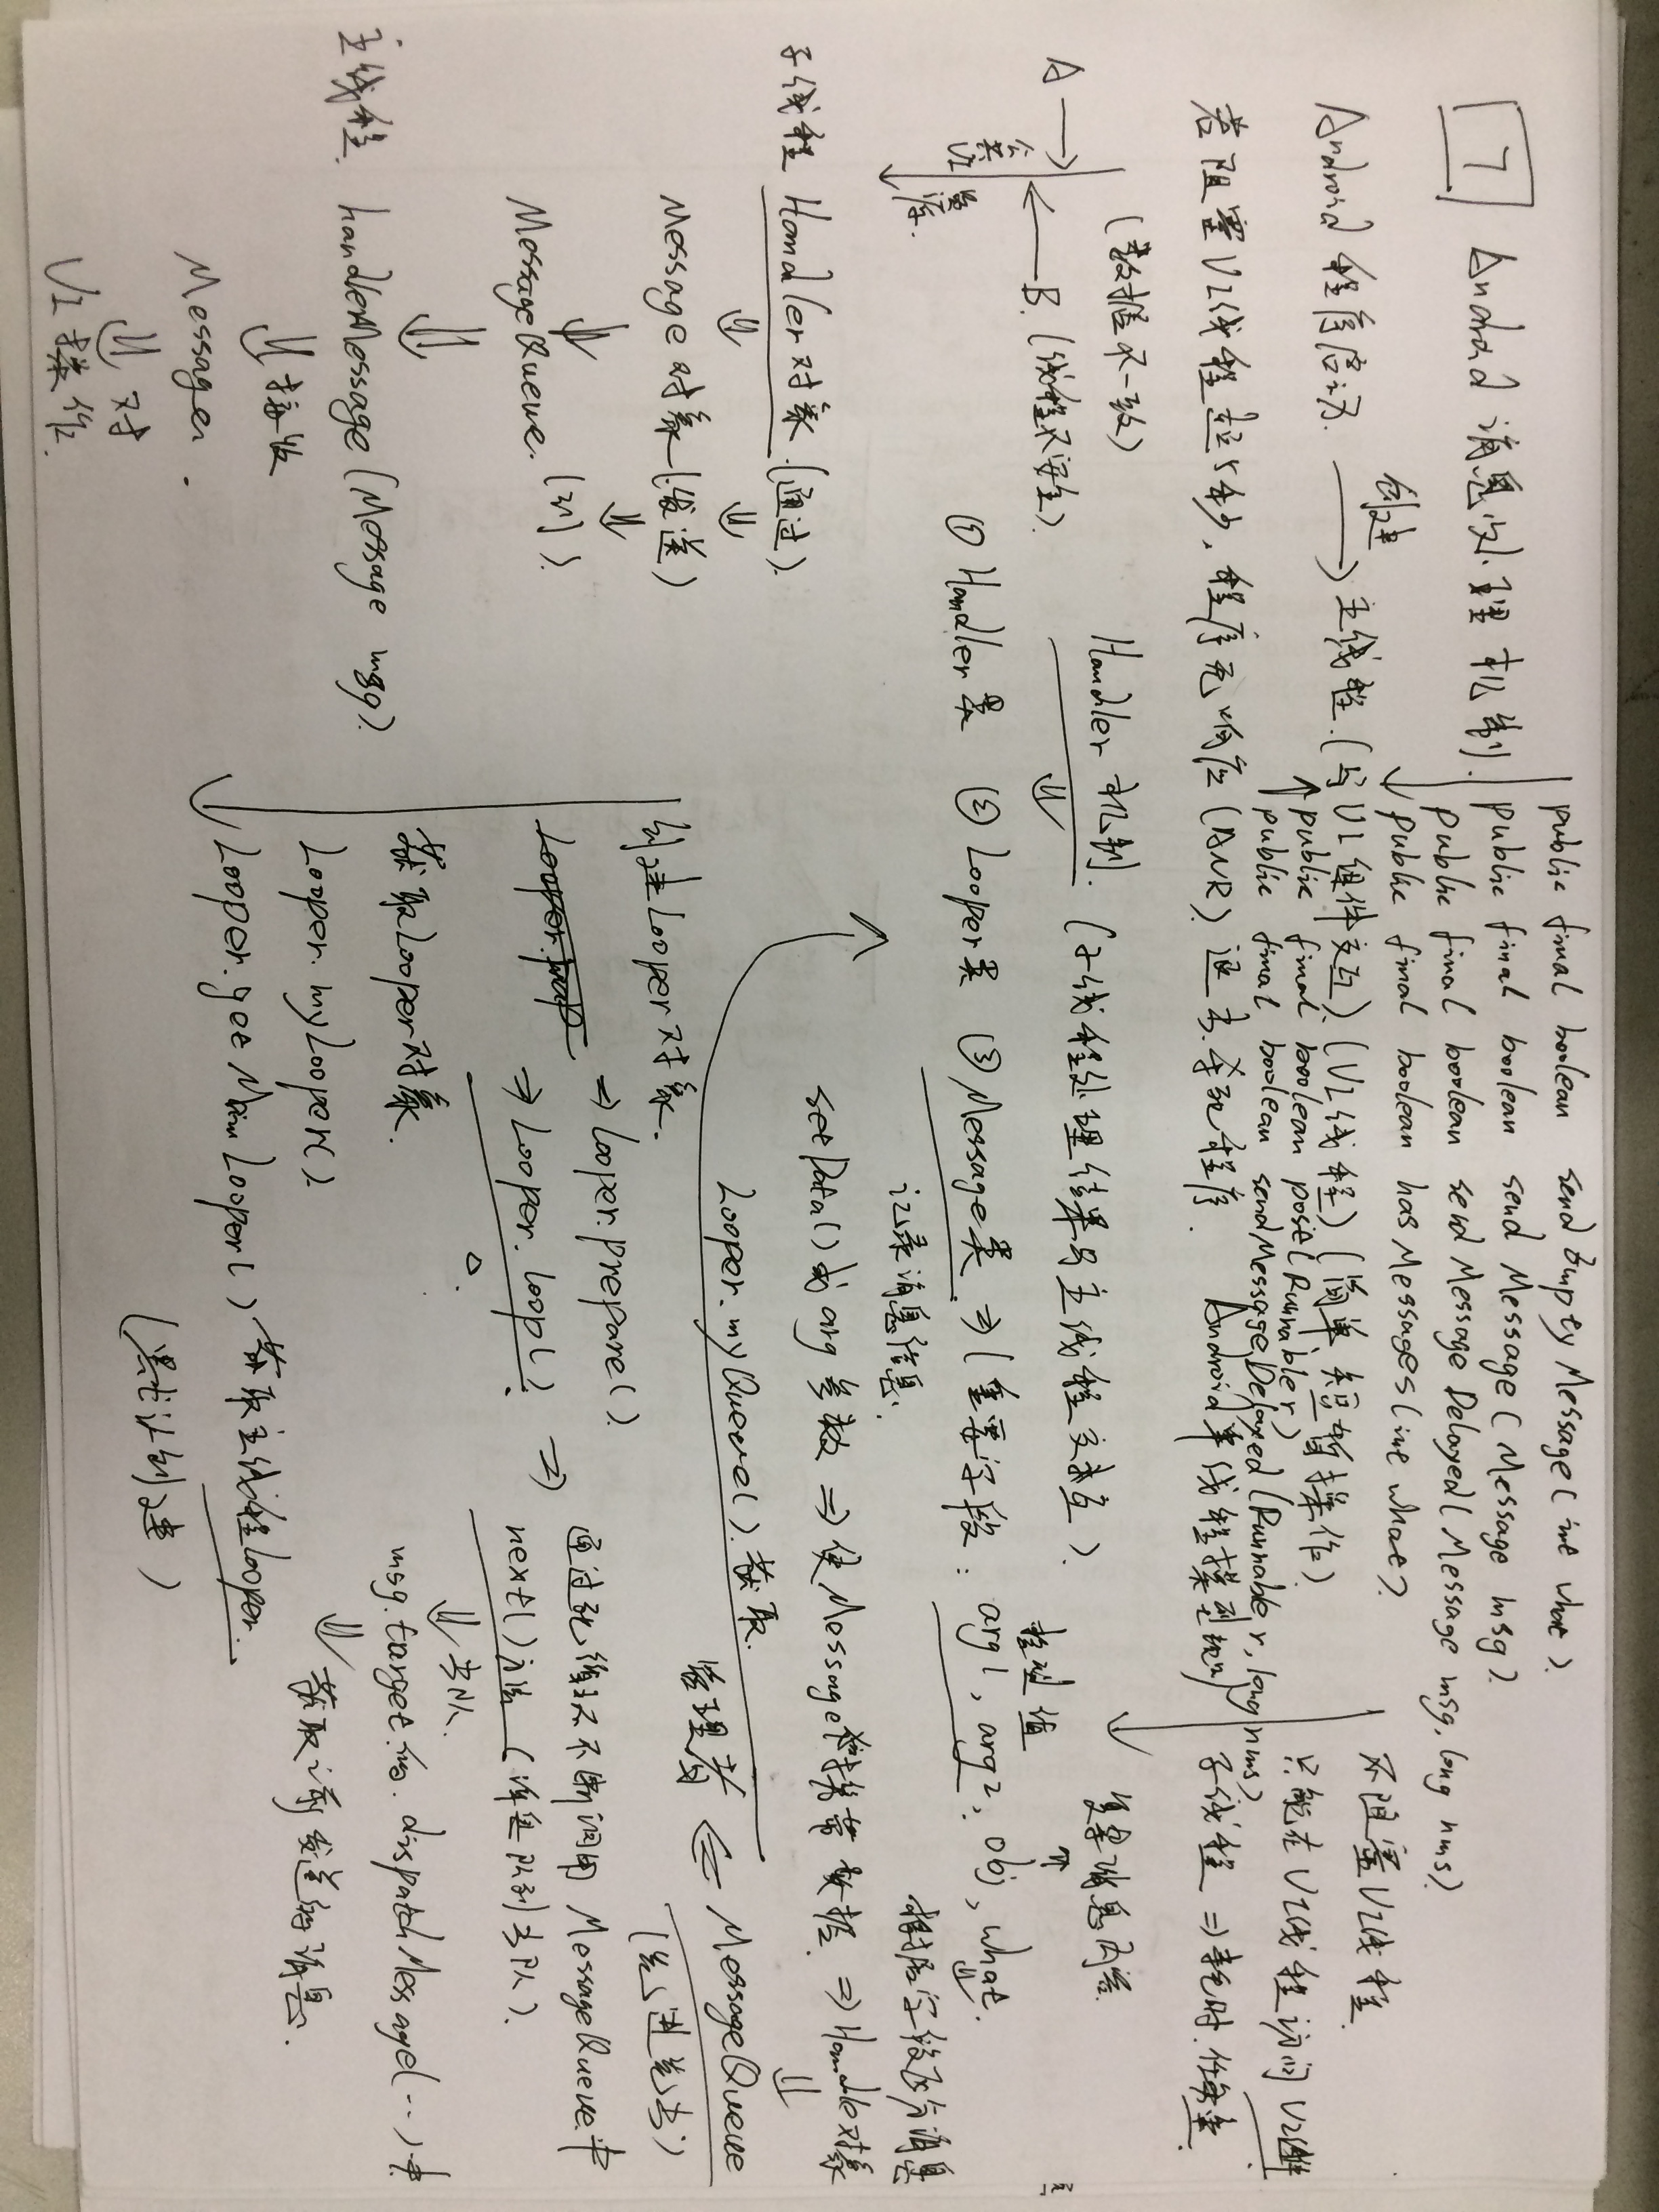 public final boolean sendEmptyMessage(int what).
7 Android 消息处理机制.
public final boolean sendMessage(Message msg).
public final boolean sendMessageDelayed(Message msg, long nms).
public final boolean hasMessages(int what).
创建
Android 程序启动. → 主线程.(与UI组件交互).(UI线程)(简单、短暂操作).
public final boolean post(Runnable r)
public final boolean sendMessageDelayed(Runnable r, long nms).
若阻塞UI线程超5秒, 程序无响应(ANR). 退出.杀死程序.
Android单线程模型规则
不阻塞UI线程.
只能在UI线程访问UI组件.
子线程 ⇒ 耗时.任务重.
(数据不一致)
A →
← B. (线程不安全).
公共UI
资源.
Handler 机制. (子线程处理结果与主线程交互).
⇓
复杂消息内容.
⇑
整型值
① Handler类 ② Looper类 ③ Message类 ⇒ (重要字段: arg1, arg2, obj, what.
⇓
记录消息信息.
根据字段区分消息
setData()或arg参数 ⇒ 使Message 携带数据. ⇒ Handle对象
⇓
Looper.myQueue().获取.
管理者 ⇐ MessageQueue
(先进先出)
子线程 Handler对象.(通过).
⇓ ⇓
Message对象(发送)
⇓ ⇓
MessageQueue. (到).
⇓
主线程. handlerMessage(Message msg).
⇓ 接收
Message.
⇓ 对
UI操作.
创建Looper对象.
⇒ Looper.prepare().
Looper.prap
⇒ Looper.loop(). ⇒
△.
通过死循环不断调用 MessageQueue.中
next()方法(消息队列出队).
⇓ 出队.
msg.target.的.dispatchMessage(…)中
⇓ 获取 发送的消息.
获取Looper对象.
Looper.myLooper().
Looper.getMainLooper() 获取主线程Looper.
(默认创建)